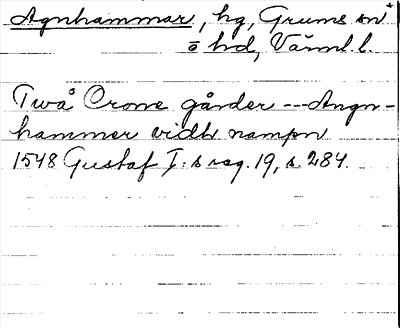 Agnhammar, hg, Grums sn+
o hd, Värml. l.
Twå Crone gårder --- Angn-
hammer vidh nampn
1548 Gustaf I:s reg. 19, s. 284.